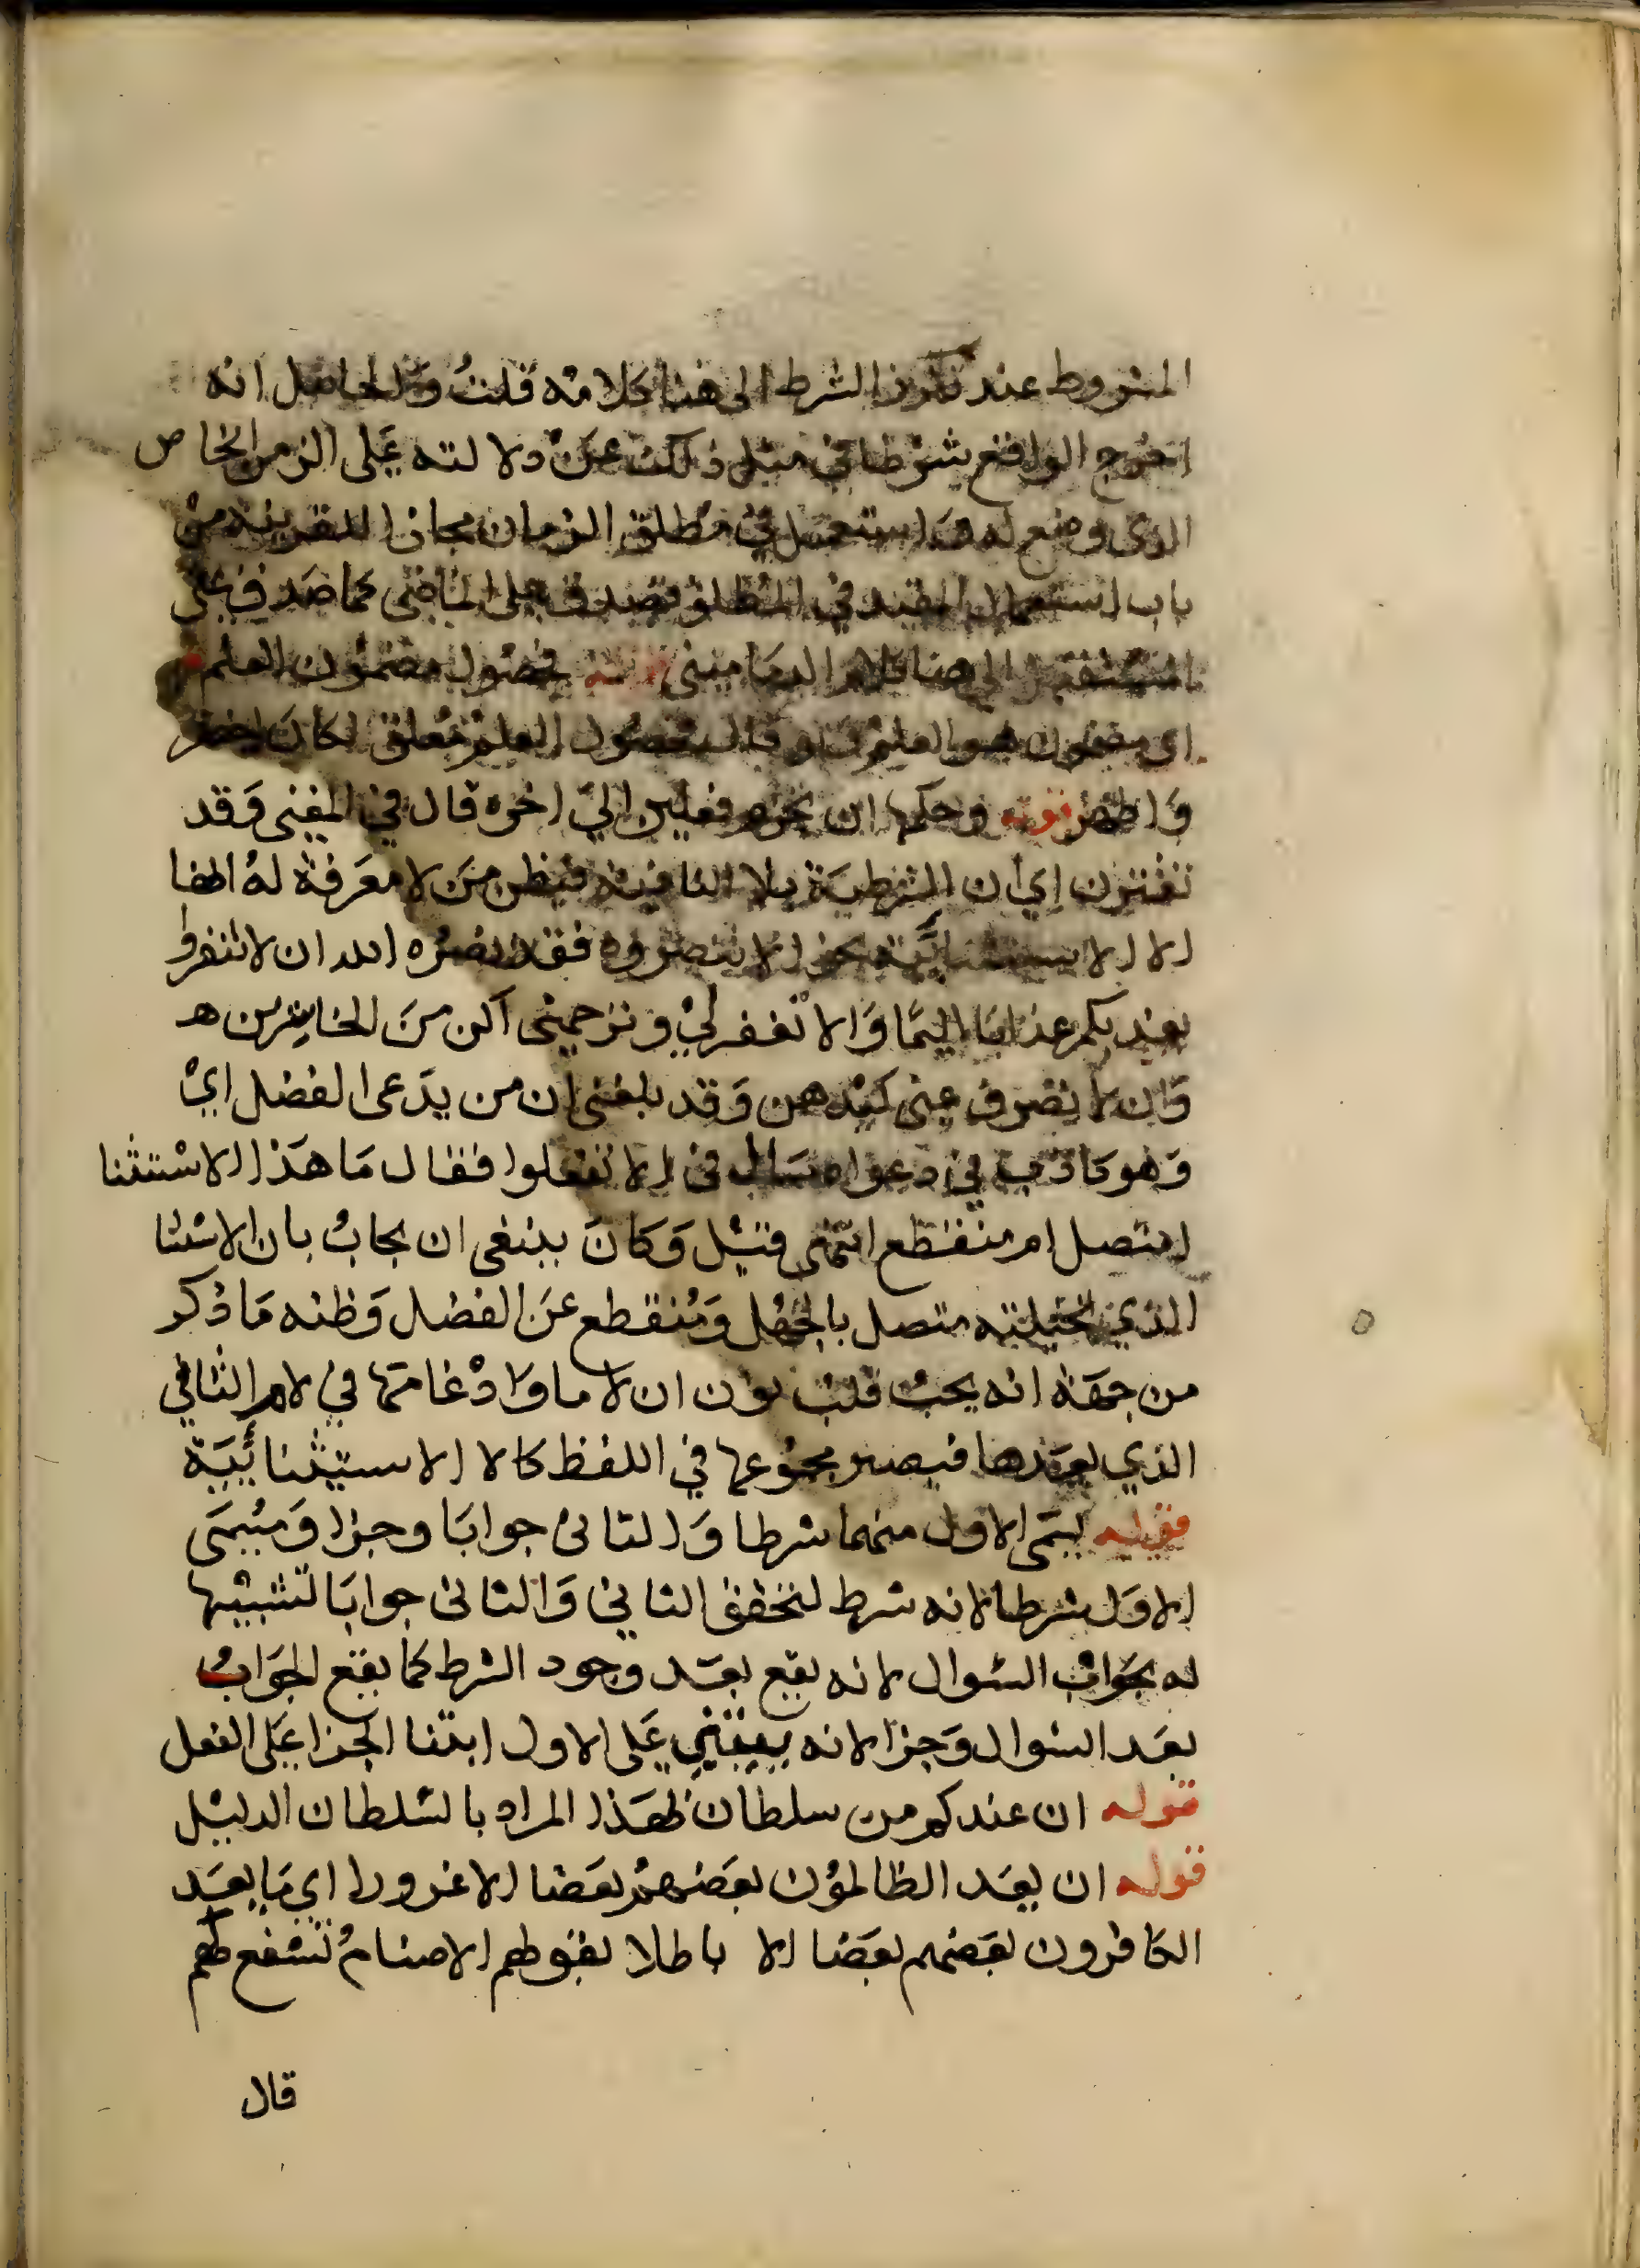 المشروط عند تكرر الشرط الى هنا كلامه قلت والحاصل انه
اخرج الواقع شرطا في مثل ذلك عن دلالته على الزمن الخاص
الذى وضع له واستعمل في مطلق الزمان مجازا لقرينة من
باب استعمال المقيد في المطلق فصدق على الماضى كما صدق على
المستقبل الي هنا كلام الدمامينى قوله بحصول مضمون العلم
اى مضمون هو العلم ولو قال بحصول العلم معلق لكان اخصر
واظهر قوله وحكمها ان تجزم فعلين الي اخره قال في المغنى وقد
تقترن اي ان الشرطية بلا النافية فيظن من لا معرفة له انها
الا الاستثنائية نحو الا تنصروه فقد نصره الله ان لا تنفروا
يعذبكم عذابا اليما والا تغفر لي وترحمنى اكن من الخاسرين ه
وان لا يصرف عنى كيدهن وقد بلغنى ان من يدعى الفضل اي
وهو كاذب في دعواه سال في الا تفعلوا فقال ما هذا الاستثنا
امتصل ام منقطع انتهى قيل وكان ينبغى ان يجاب بان الاستثنا
الذي تخيلته متصل بالجهل ومنقطع عن الفضل وظنه ما ذكر
من جهة انه يجب قلب نون ان لاما وادغامها في لام الثافي
الذي بعدها فيصير مجموعها في اللفظ كالا الاستيثنائية
قوله يسمى الاول منهما شرطا والثانى جوابا وجزا ويسمى
الاول شرطا لانه شرط لتحقق الثاني والثانى جوابا لتشبيها
له بجواب السوال لانه يقع بعد وجود الشرط كما يقع الجواب
بعد السوال وجزا لانه يبتني على الاول ابتنا الجزا على الفعل
قوله ان عندكم من سلطان بهذا المراد بالسلطان الدليل
قوله ان يعد الظالمون بعضهم بعضا الا غرورا اي ما يعد
الكافرون بعضهم بعضا الا باطلا بقولهم الاصنام تشفع لهم
قال